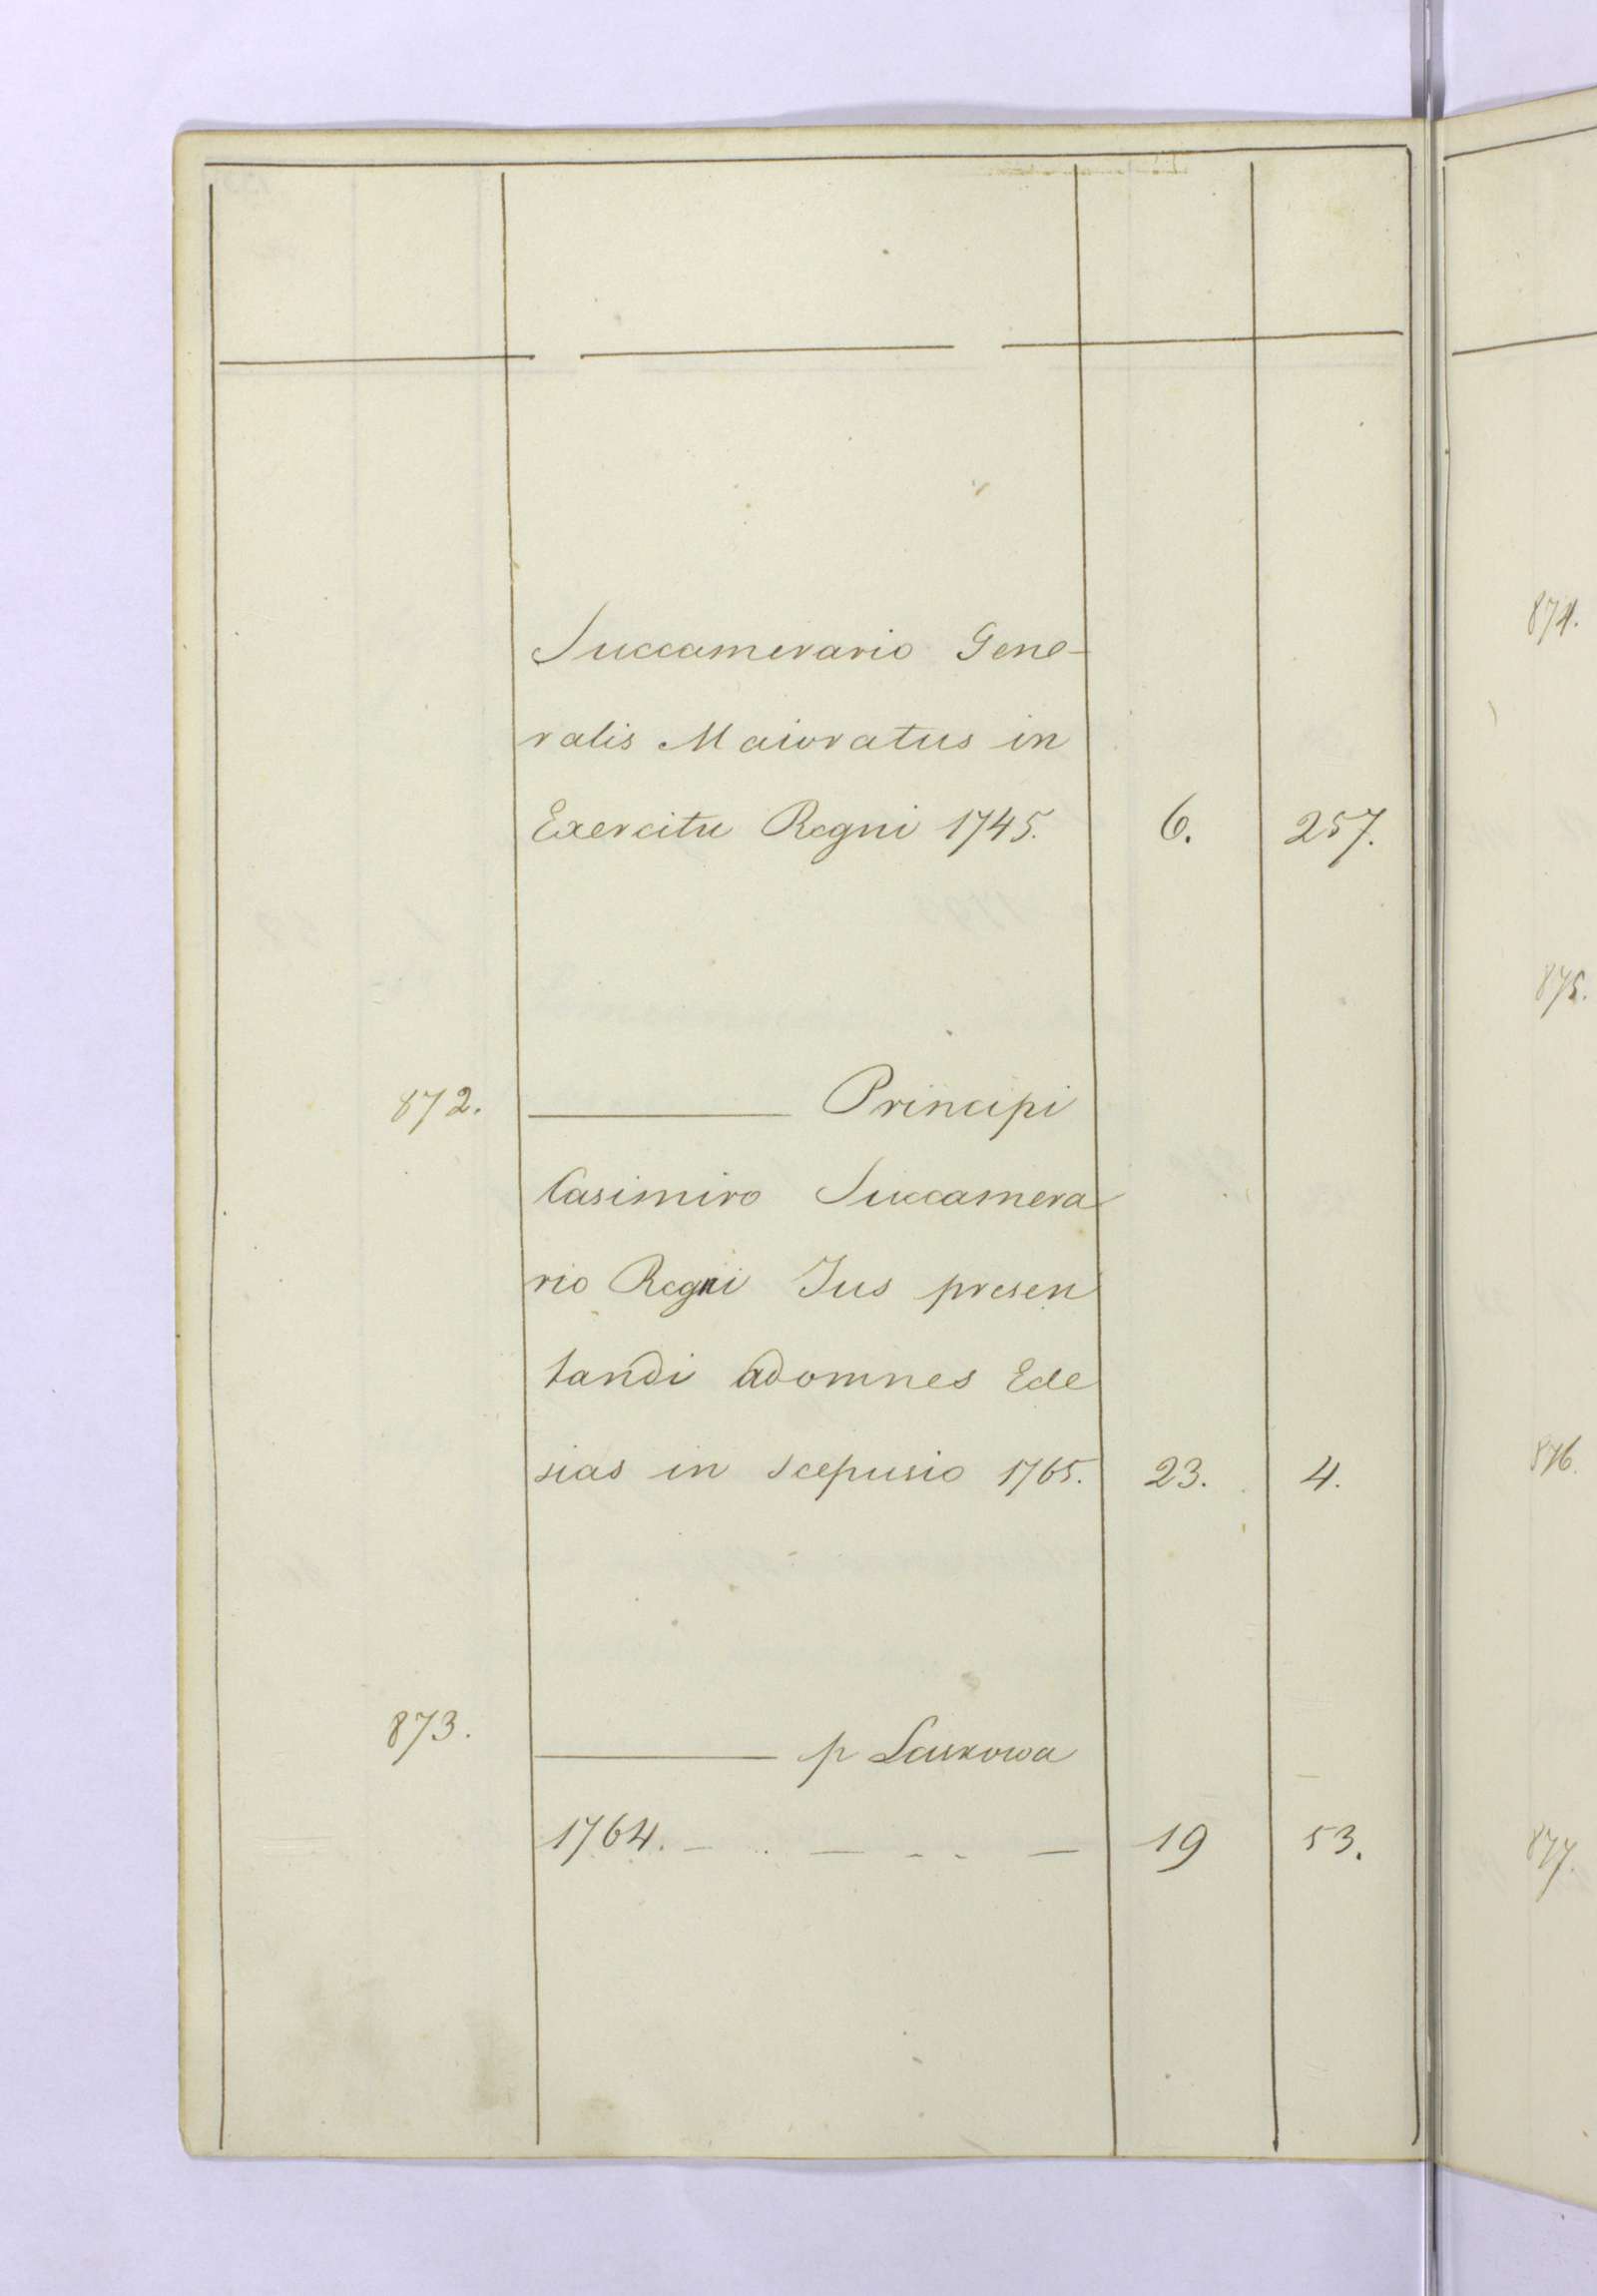 Succamerario Gene-
ralis Maioratus in
Exercitu Regni 1745. 6. 257.
872. ——— Principi
Casimiro Succamera
rio Regni Jus presen
tandi adomnes Ecle
sias in Scepusio 1765. 23. 4.
873. ——— p Laskowa
1764. — . . — - - — 19 53.
874.
875.
876.
877.